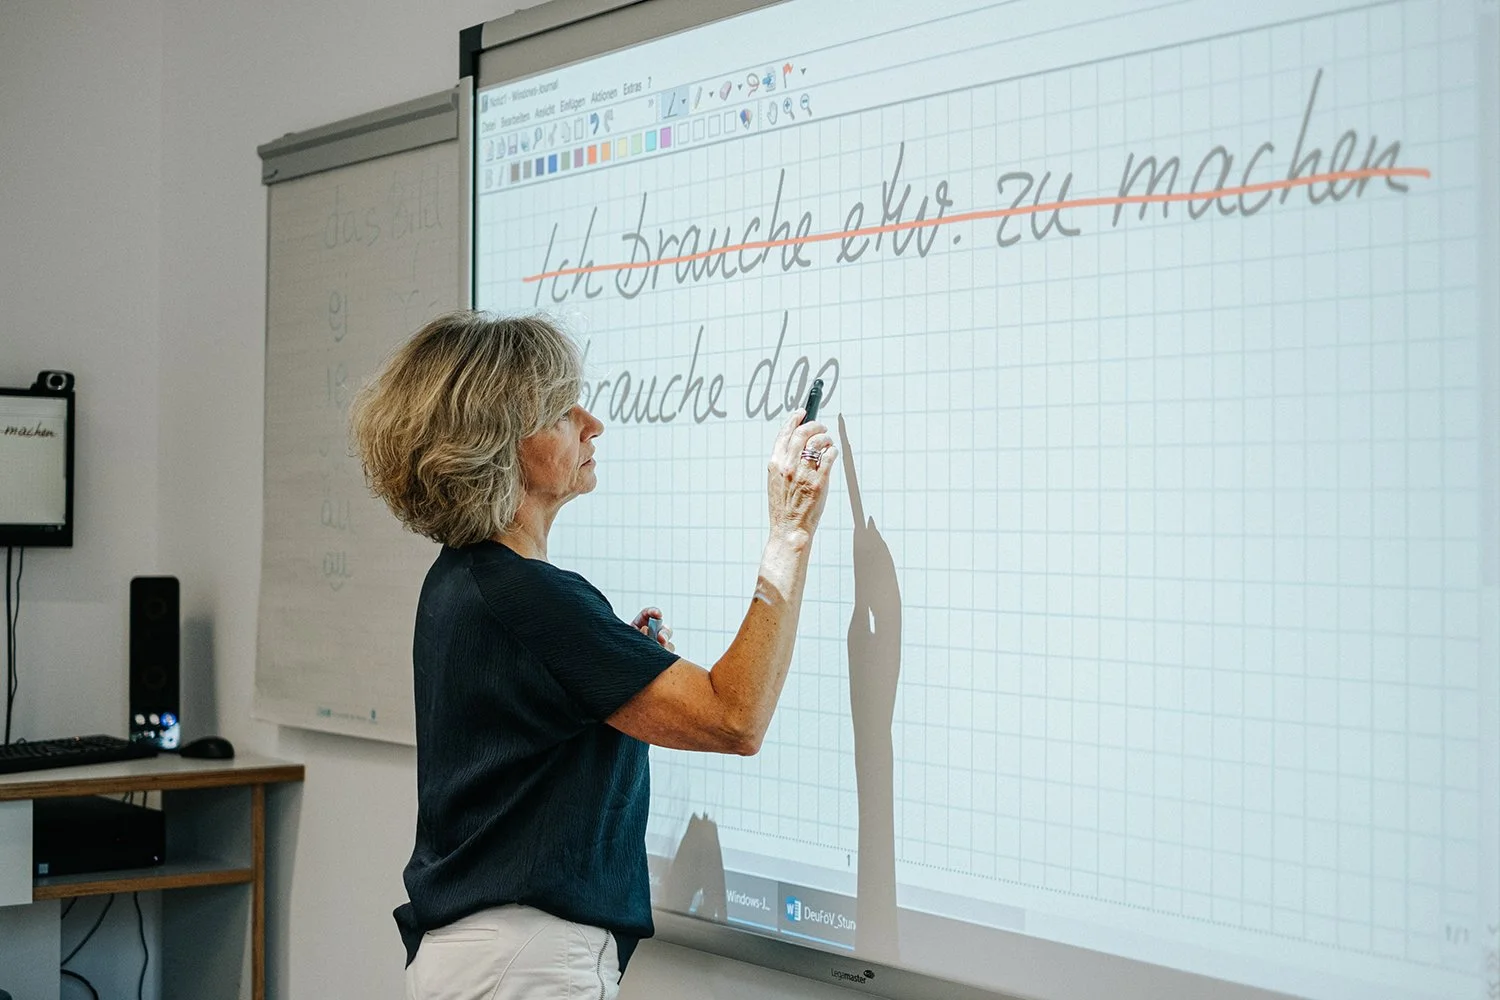 Notiz1 - Windows-Journal
Datei Bearbeiten Ansicht Einfügen Aktionen Extras ?
Ich brauche etw. zu machen
brauche das
das Bild
ei
ie
äu
au
machen
1
1/1
Windows-J...
DeuFöV_Stun
Legamaster